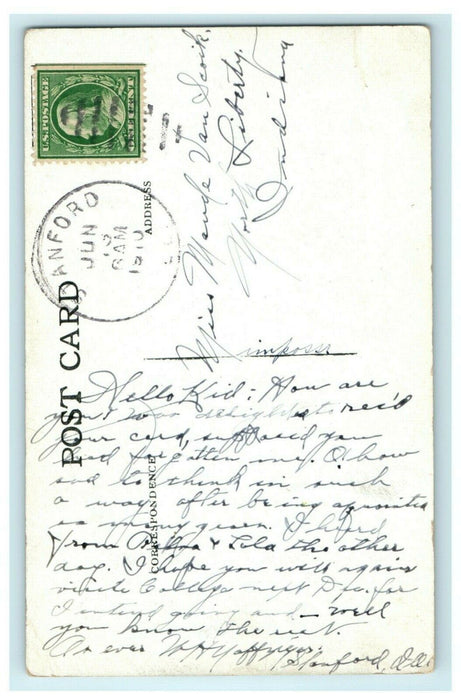 U.S. POSTAGE
ONE CENT
ANFORD
JUN
6 AM
1910
POST CARD
ADDRESS
CORRESPONDENCE
Miss Maude Van Scoik,
North Liberty,
Indiana
Hello Kid: How are
you. I was delighted to rec'd
your card, supposed you
had forgotten me. Oh how
sad to think in such
a way, after being
as many years. I heard
from & Lola the other
day. I hope you will again
visit College next Dec. for
I intend going and - well
you know the rest.
As ever W H
Stanford, Ill.